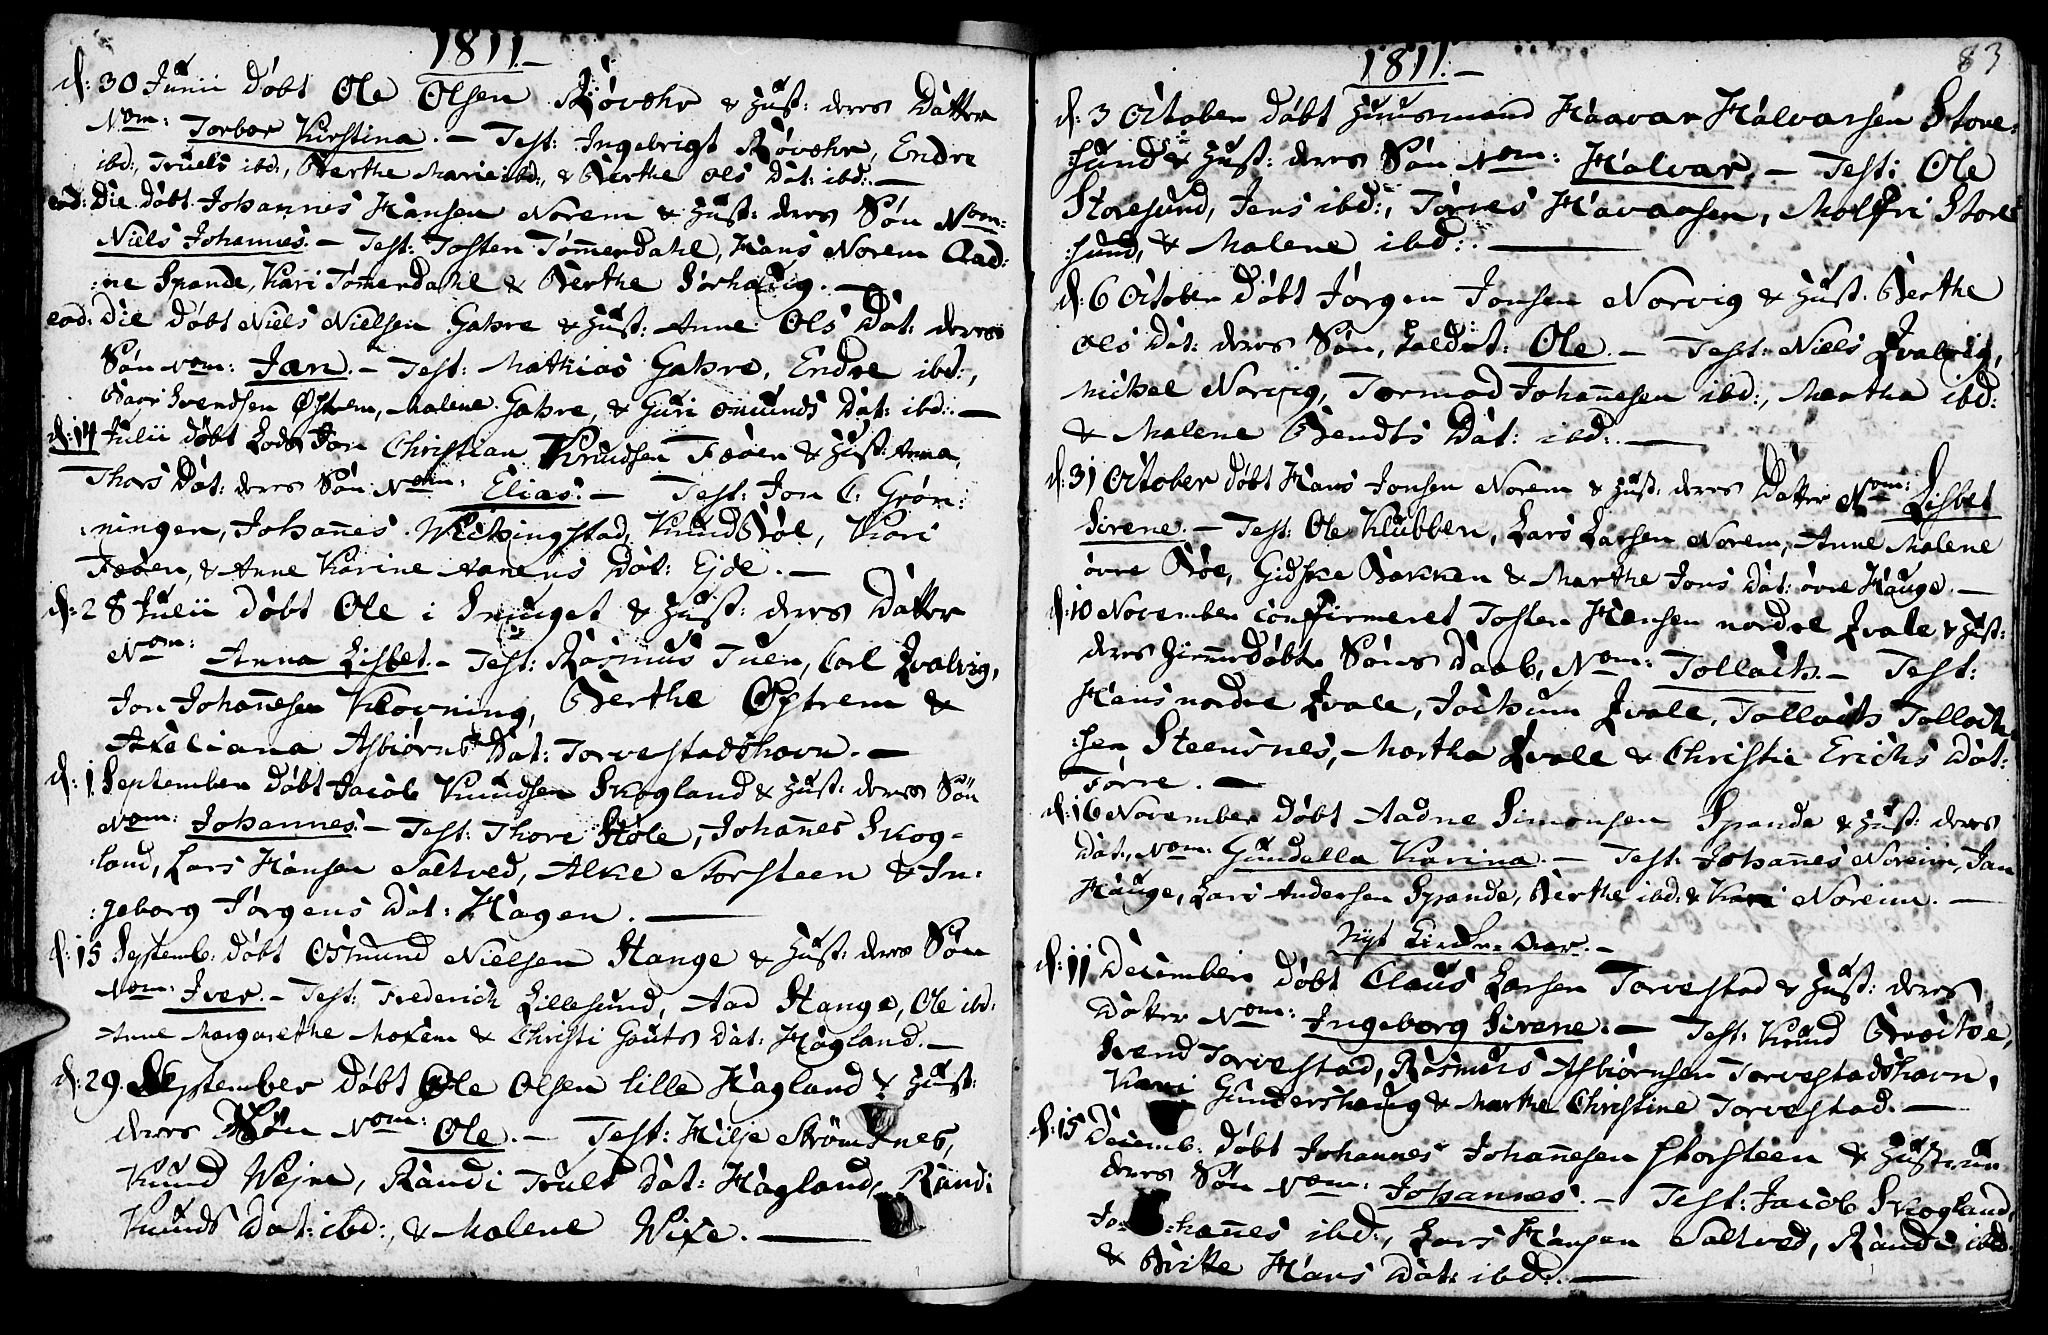 1811.-
d: 30 Junii døbt Ole Olsen Røvæhr & Hust: deres Datter
Nom: Torbor Kirstina. - Test: Ingebrigt Røvæhr, Endre
ibd:, Truels ibd:, Berthe Marie ibd:, & Berthe Ols Dat: ibd:. —
eod: Die døbt Johannes Hansen Norem & Hust: deres Søn Nom:
Niels Johannes. - Test: Tosten Tømmerdahl, Hans Norem Aad:
:ne Spande, Kari Tømerdahl & Berthe Sørhaug. —
eod: Die døbt Niels Nielsen Gahre & Hust: Anne Ols Dat: deres
Søn Nom: Jan. - Test: Mathias Gahre, Endre ibd:,
Svendsen Østrem, Malene Gahre, & Guri Omunds Dat: ibd:. —
d: 14 Julii døbt Lods Jon Christian Knudsen Fæøen & Hust: Anna
Thors Dat: deres Søn Nom: Elias. - Test: Jon C: Grøn:
:ningen, Johanes Wichingstad, Knud Bøe, Kari
Fæøen, & Anne Karine Hanens Dat: Eide. —
d: 28 Julii døbt Ole i Smuget & Hust: deres Datter
Nom: Anna Lisbet. - Test: Rasmus Tuen, Carl Qvalvig,
Jon Johanesen Klovning, Berthe Østrem &
Axeliana Asbiørns Dat: Torvestadshavn. —
d: 1 September døbt Jacob Knudsen Skogland & Hust: deres Søn
Nom: Johannes. - Test: Thore Støle, Johanes Skog-
:land, Lars Hansen Saltved, Alke Storsteen & In:
:geborg Jørgens Dat: Hagen. —
d: 15 Septemb: døbt Osmund Nielsen Stange & Hust: deres Søn
Nom: Iver. - Test: Frederich Lillesund, Aad Stange, Ole ibd:
Anne Margarethe Moxem & Christi Gauts Dat: Hagland. —
d: 29 September døbt Ole Olsen lille Hagland & Hust:
deres Søn Nom: Ole. - Test: Hilje Strømsnes,
Knud Wejre, Randi Truls Dat: Hagland, Randi
Knuds Dat: ibd:, & Malene Wixe. —
83
1811. —
d: 3 October døbt Huusmand Haavar Halvarsen Store:
:sund & Hust: deres Søn Nom: Halvar. - Test: Ole
Storesund, Jens ibd:, Tørres Havarsen, Molfri Store
:sund, & Malene ibd:. —
d: 6 October døbt Jørgen Jonsen Norvig & Hust. Berthe
Ols Dat: deres Søn, kaldet: Ole. - Test: Niels Qvalvig,
Michel Norvig, Tormod Johanesen ibd:, Martha ibd:
& Malene Bendts Dat: ibd:. —
d: 31 October døbt Hans Jonsen Norem & Hust: deres Datter Nom: Lisbet
Sirene. - Test: Ole Klubben, Lars Larsen Norem, Anne Malene
øvre Bøe, Gidske Bakken & Marthe Jons Dat: øvre Hauge. —
d: 10 November confirmeret Tosten Hansen nordre Qvale & Hust:
deres Hiemmedøbte Søns Daab, Nom: Tollach. - Test:
Hans nordre Qvale, Jochum Qvale, Tollach Tollach:
:sen Steensnes, Martha Qvale & Christie Erichs Dat:
Førre. —
d: 16 November døbt Aadne Simonsen Spande & Hust: deres
Dat:, Nom: Gundella Karina. - Test: Johanes Noreim, Jan
Hauge, Lars Andersen Spande, Berthe ibd: & Kari Noreim. —
Nyt Kirke-Aar. -
d: 11 December døbt Claus Larsen Torvestad & Hust: deres
Datter Nom: Ingeborg Sirene. - Test: Knud Brecitøe,
Svend Torvestad, Rasmus Asbiørnsen Torvestadshavn,
Kari Gundershaug & Marthe Christine Torvestad. —
d: 15 Decemb: døbt Johannes Johanesen Storsteen & Hustrue
deres Søn Nom: Johannes. - Test: Jacob Skogland,
Jo: :hanes ibd:, Lars Hansen Saltved, Randi ibd:
& Britte Hans Dat: ibd:. —